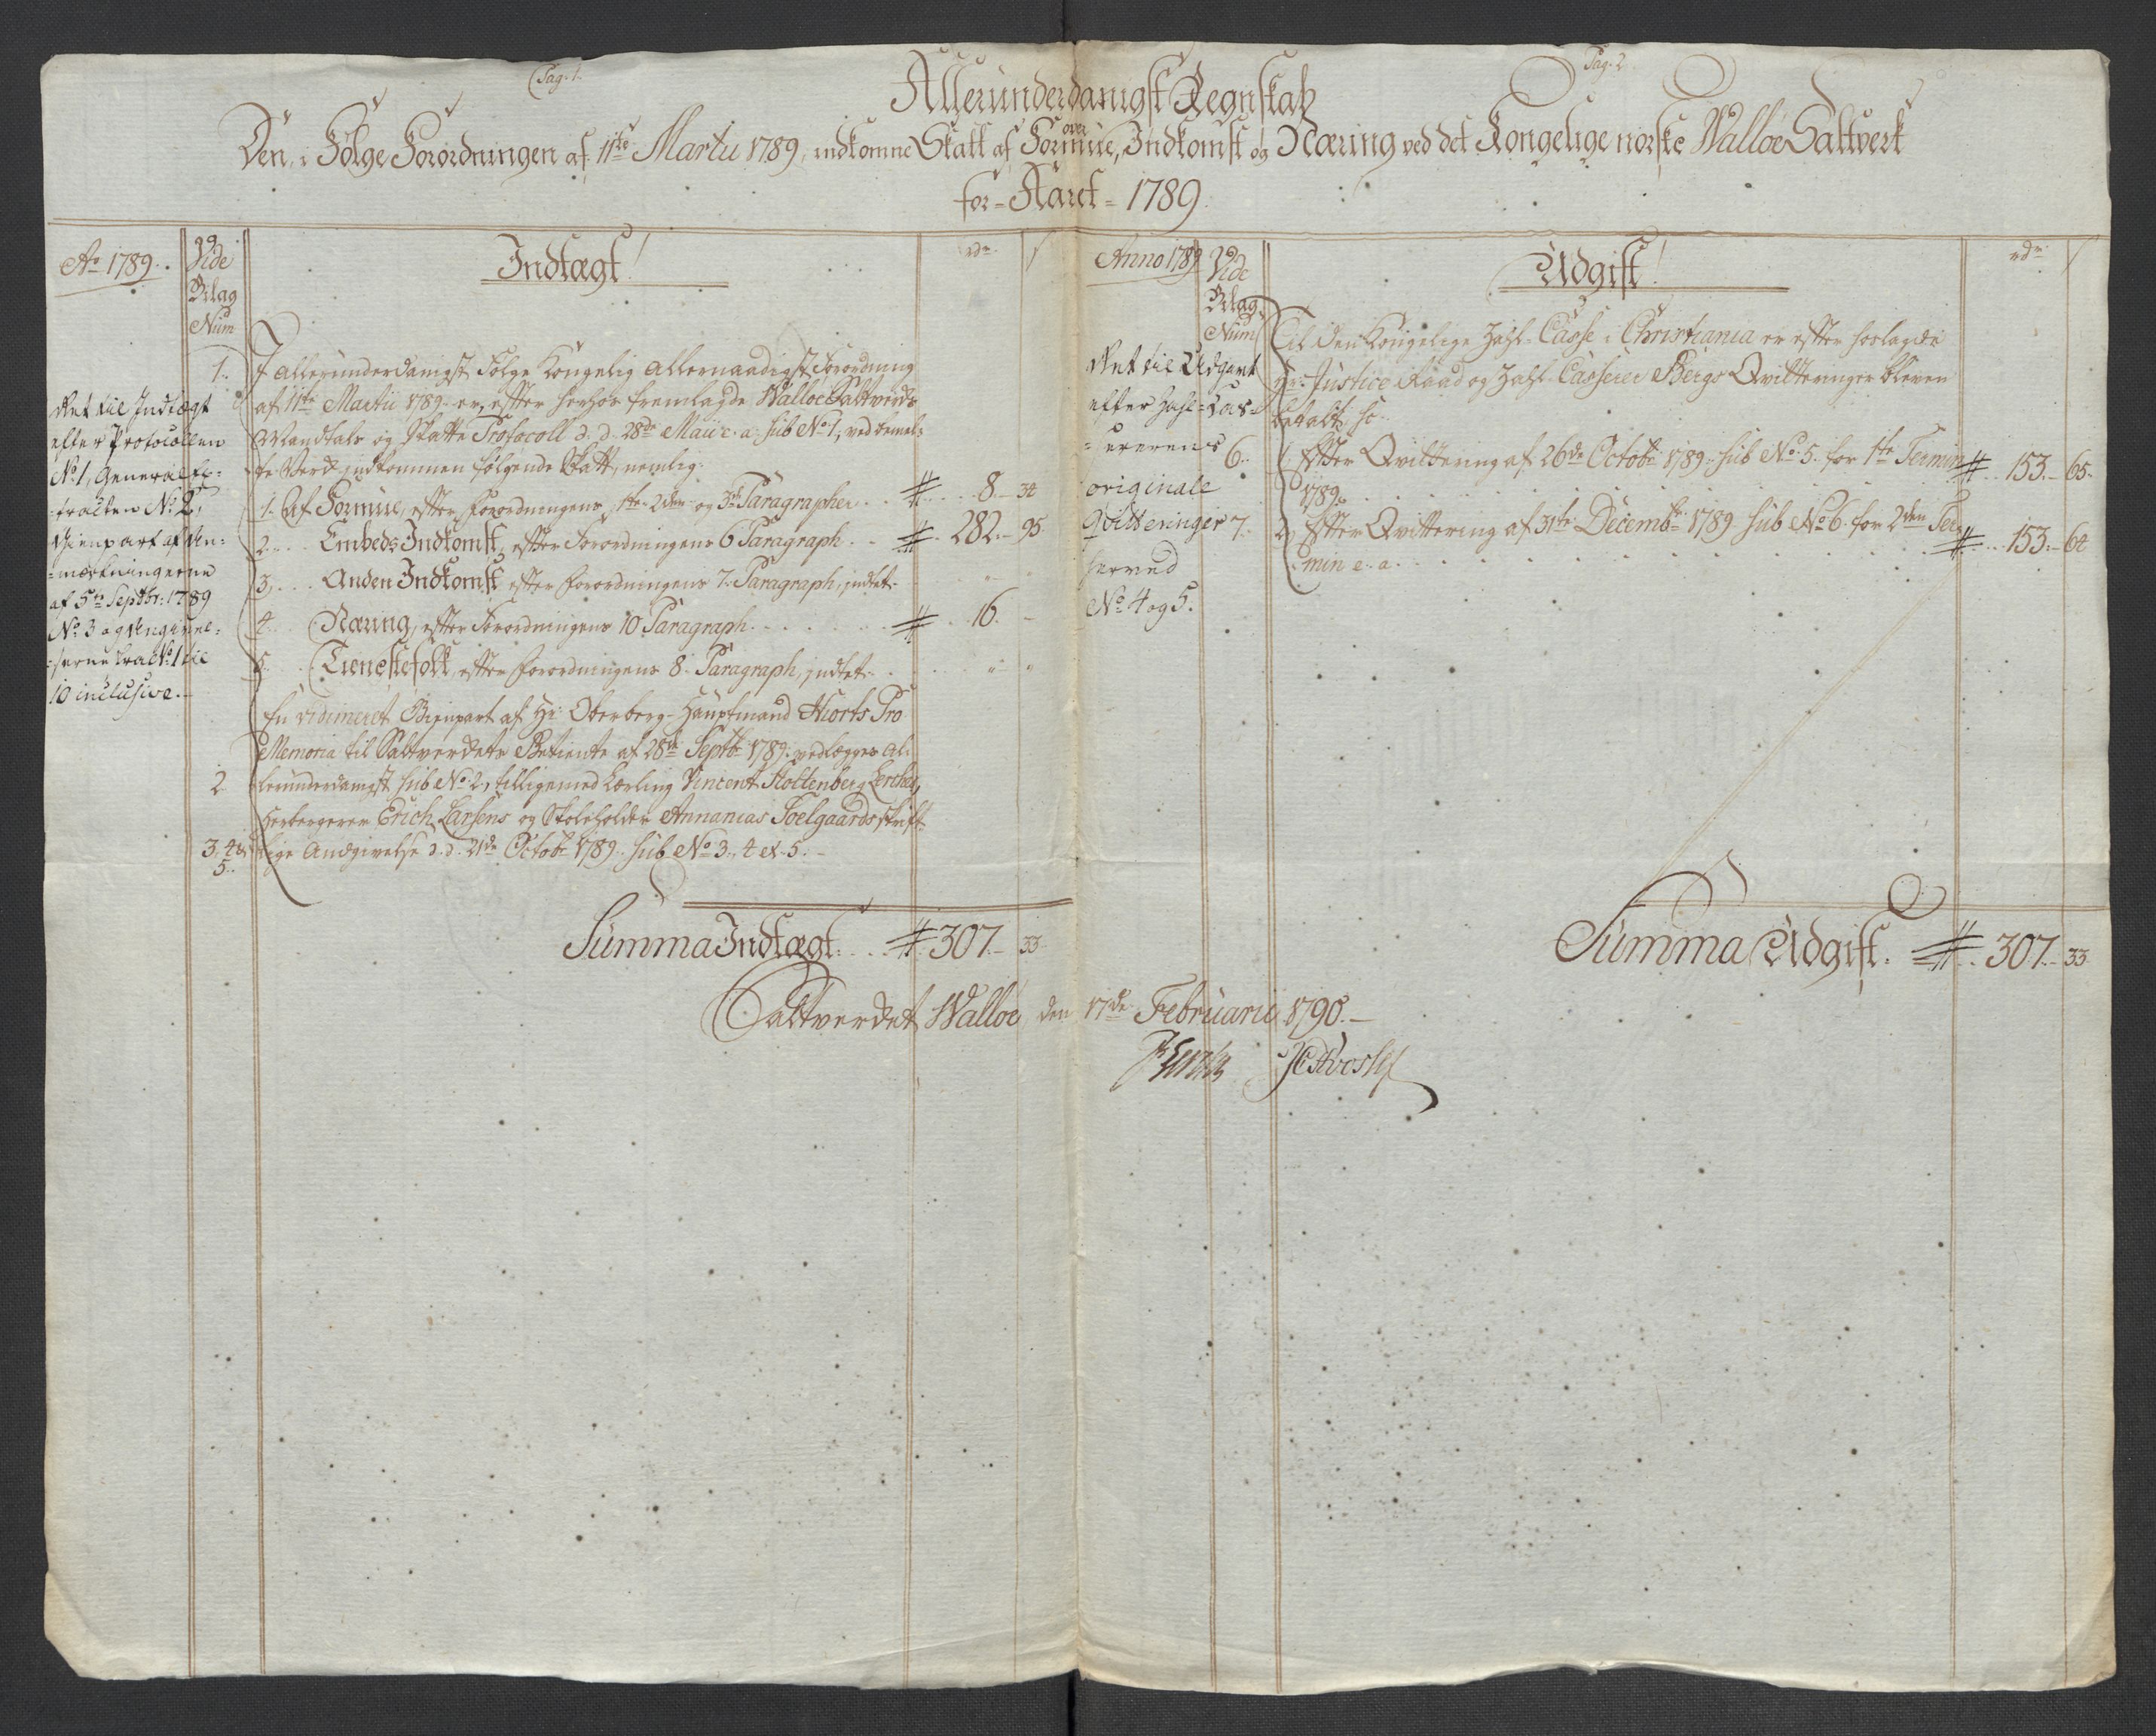 Pag. 1.
Pag. 2
Allerunderdanigst Regnskab
over
Den, i Følge Forordningen af 11te Martii 1789, indkomne Skatt af Formue, Indkomst og Næring ved det Kongelige norske Walløe Saltverk
for = Aaret = 1789.
Ao 1789.
Vide
Bilag
Num
Indtægt!
rdr.
ß
1.
I allerunderdanigst Følge Kongelig allernaadigst Forordning
af 11te Martii 1789 er, efter herhos fremlagde Walløe Saltverks
Mandtals og Skatte Protocoll d. d. 28de Maii c. a. sub No 1, ved bemel=
te Verk indkommen følgende Skatt, nemlig:
1. Af Formue, efter Forordningens 1te 2den og 3de Paragrapher . . # . . 8. – 34
2. . . . Embeds Indkomst, efter Forordningens 6 Paragraph . . # . 282. – 95
3, . . . Anden Indkomst efter Forordningens 7. Paragraph, intet. " "
4. . . Næring, efter Forordningens 10 Paragraph . . . . . # . . 16. –
5. . . Tienestefolk, efter Forordningens 8. Paragraph, intet. . . " "
En vidimeret Gienpart af Hr. Oberberg-Hauptmand Hiorts Pro
Memoria til Saltverkets Betiente af 28de Septbr 1789. vedlægges al=
2
lerunderdanigst sub No 2, tilligemed Lærling Vincent Stoltenberg Lerches,
Herbergerer Erich Larsens og Skoleholder Annanias Soelgaards skrift=
3, 4 &
5.
lige Angivelse d. d. 21de Octobr 1789. sub No 3., 4 et 5. –
Ret til Indtægt
efter Protocollen
No 1, General Ex=
tracten No 2,
Gienpart af An=
mærkningerne
af 5te Septbr: 1789
No 3 og Angivel=
serne Lra No 1 til
10 inclusive.
Summa Indtægt. . . # 307. – 33
Anno 1789
Vide
Bilag
Num
Udgift!
rdr.
ß
Til den Kongelige Zahl-Casse i Christiania er efter hoslagde
Hr. Justice Raad og Zahl-Casserer Bergs Qvitteringer bleven
betalt, sc.
6.
1. Efter Qvittering af 26de Octobr 1789. sub No 5. for 1te Termin # . . 153. – 65.
1789.
7.
2, Efter Qvittering af 31te Decembr 1789 sub No 6. for 2den Ter=
min e. a. . . . # . . 153. – 64
Ret til Udgivt
efter Zahl=Cas=
=sererens
originale
Qvitteringer
herved
No 4 og 5.
Summa Udgift. # . . 307. – 33
Saltverket Walløe den 17de Februarii 1790. –